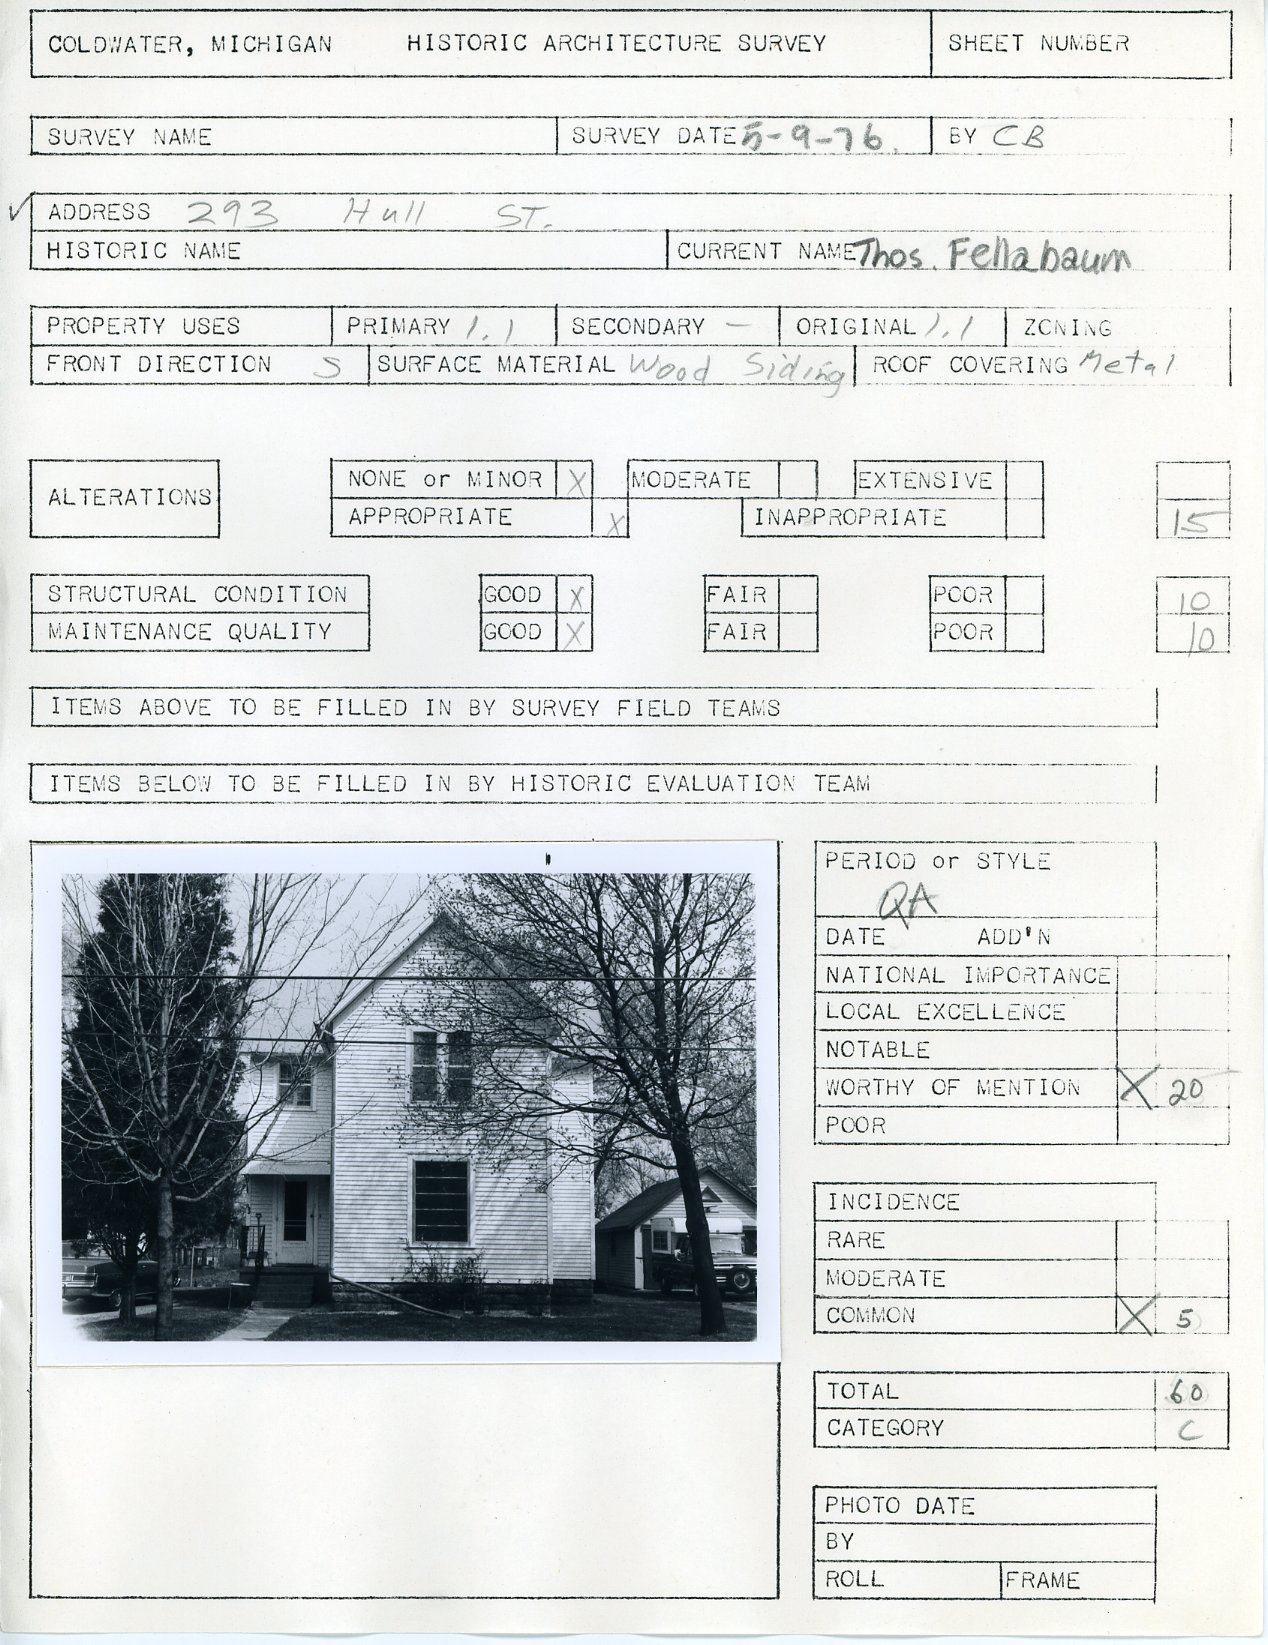 COLDWATER, MICHIGAN HISTORIC ARCHITECTURE SURVEY SHEET NUMBER
SURVEY NAME SURVEY DATE 5-9-76. BY CB
✓ ADDRESS 293 Hull ST.
HISTORIC NAME CURRENT NAME Thos. Fellabaum
PROPERTY USES PRIMARY 1.1 SECONDARY — ORIGINAL 1.1 ZONING
FRONT DIRECTION S SURFACE MATERIAL Wood Siding ROOF COVERING Metal
ALTERATIONS
NONE or MINOR X MODERATE EXTENSIVE
APPROPRIATE X INAPPROPRIATE 15
STRUCTURAL CONDITION GOOD X FAIR POOR 10
MAINTENANCE QUALITY GOOD X FAIR POOR 10
ITEMS ABOVE TO BE FILLED IN BY SURVEY FIELD TEAMS
ITEMS BELOW TO BE FILLED IN BY HISTORIC EVALUATION TEAM
PERIOD or STYLE
QA
DATE ADD'N
NATIONAL IMPORTANCE
LOCAL EXCELLENCE
NOTABLE
WORTHY OF MENTION X 20
POOR
INCIDENCE
RARE
MODERATE
COMMON X 5
TOTAL 60
CATEGORY C
PHOTO DATE
BY
ROLL FRAME